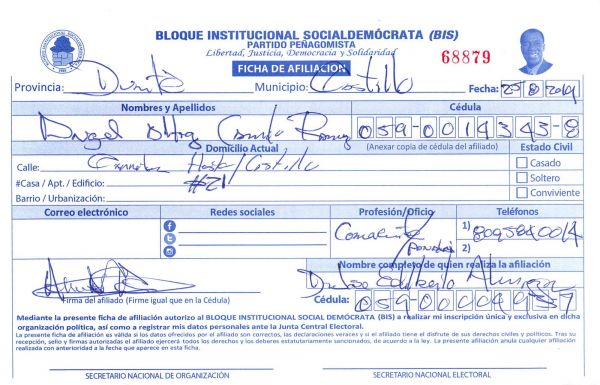 BLOQUE INSTITUCIONAL SOCIALDEMÓCRATA (BIS)
PARTIDO PEÑAGOMISTA
Libertad, Justicia, Democracia y Solidaridad
68879
FICHA DE AFILIACIÓN
Provincia: Duarte Municipio: Castillo Fecha: 25/8/2019
Nombres y Apellidos Cédula
Angel 059-0014343-8
Domicilio Actual (Anexar copia de cédula del afiliado) Estado Civil
Calle: Castillo Casado
#Casa / Apt. / Edificio: #21 Soltero
Barrio / Urbanización: Conviviente
Correo electrónico Redes sociales Profesión/Oficio Teléfonos
1) 8095840014
2)
Nombre completo de quien realiza la afiliación
Firma del afiliado (Firme igual que en la Cédula) Cédula:
Mediante la presente ficha de afiliación autorizo al BLOQUE INSTITUCIONAL SOCIAL DEMÓCRATA (BIS) a realizar mi inscripción única y exclusiva en dicha
organización política, así como a registrar mis datos personales ante la Junta Central Electoral.
La presente ficha de afiliación es válida si los datos ofrecidos por el afiliado son correctos, las declaraciones veraces y si el afiliado tiene el disfrute de sus derechos civiles y políticos. Tras su
recepción, sello y firmas autorizadas el afiliado ejercerá todos los derechos y los deberes estatutariamente sancionados, de acuerdo a la ley. La presente afiliación anula cualquier afiliación
realizada con anterioridad a la fecha que aparece en esta ficha.
SECRETARIO NACIONAL DE ORGANIZACIÓN SECRETARIO NACIONAL ELECTORAL